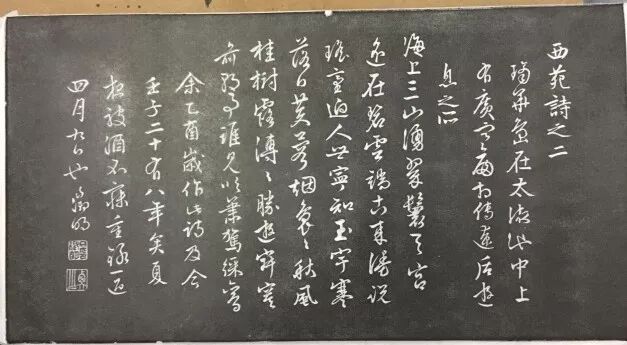 西苑詩之二
瓊華島在太液池中上
有廣寒殿相傳遼后遊
息之所
海上三山湧翠鬟天宮
遙在碧雲端古來漫說
瑤臺迥人世寧知玉宇寒
落日芙蓉烟裊〻秋風
桂樹露漙〻勝遊寂寞
前朝事誰見吹簫駕綵鸞
余乙酉歲作此詩及今
壬子二十有八年矣夏
夜被酒不寐重錄一過
四月九日也徵明